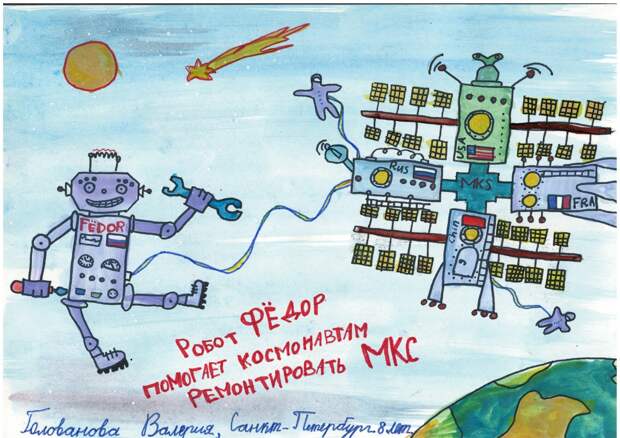 RUS
USA
MKS
FRA
Chin
FЁDOR
РОБОТ ФЁДОР
ПОМОГАЕТ КОСМОНАВТАМ
РЕМОНТИРОВАТЬ МКС
Голованова Валерия, Санкт-Петербург. 8 лет